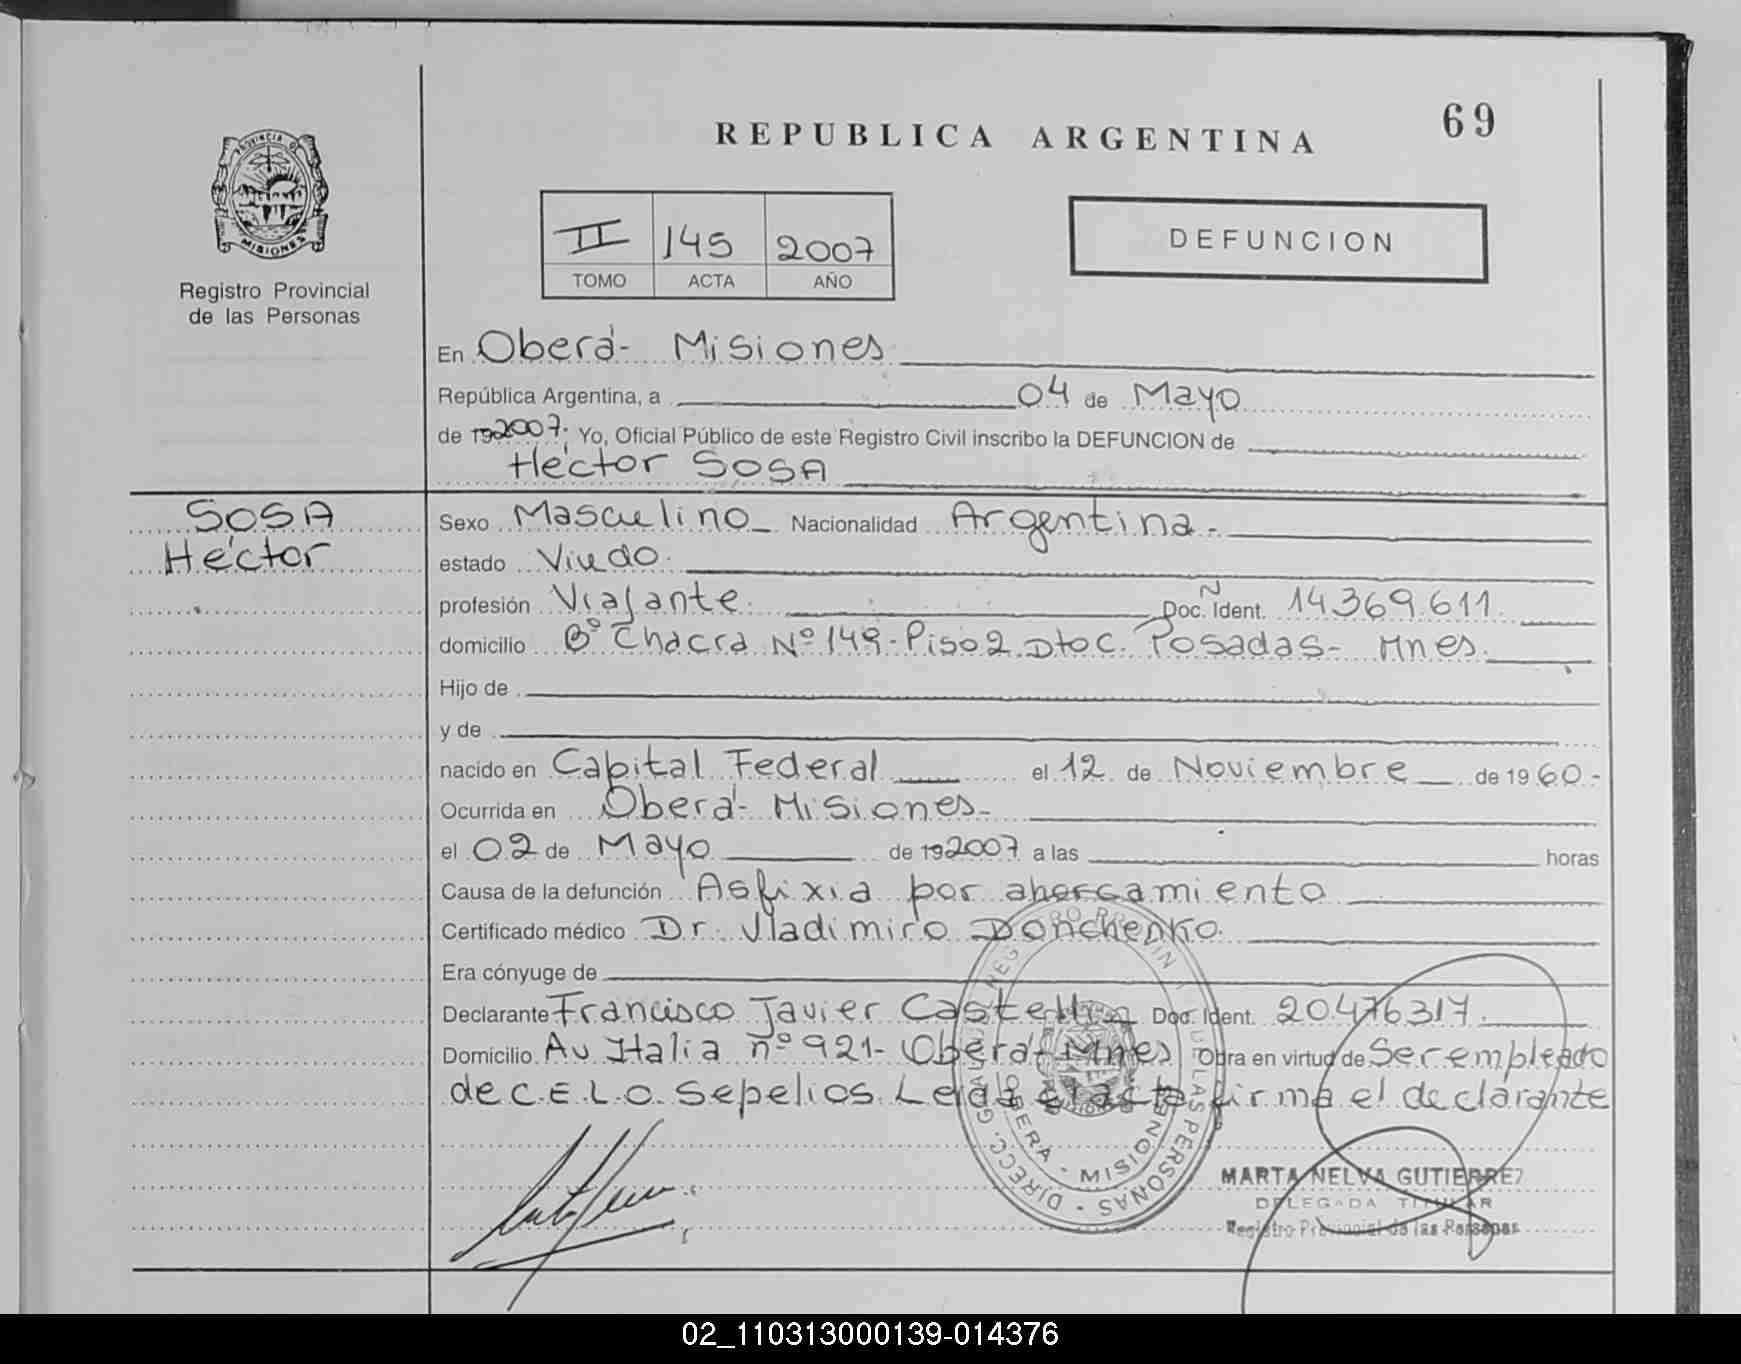 69
REPUBLICA ARGENTINA
PROVINCIA DE
MISIONES
Registro Provincial
de las Personas
II 145 2007
TOMO ACTA AÑO
DEFUNCION
En Oberá - Misiones
República Argentina, a 04 de Mayo
de 192007; Yo, Oficial Público de este Registro Civil inscribo la DEFUNCION de
Héctor SOSA
SOSA
Héctor
Sexo Masculino Nacionalidad Argentina.-
estado Viudo.
profesión Viajante. Doc. Ñ Ident. 14.369.611.
domicilio Bº Chacra Nº 149 - Piso 2 Dto C. Posadas - Mnes.
Hijo de
y de
nacido en Capital Federal el 12 de Noviembre de 1960.-
Ocurrida en Oberá - Misiones -
el 02 de Mayo de 192007 a las horas
Causa de la defunción Asfixia por ahorcamiento
Certificado médico Dr. Vladimiro Donchenko.
Era cónyuge de
Declarante Francisco Javier Doc. Ident. 20.476.317.
Domicilio Av Italia nº 921 - Oberá - Mnes Obra en virtud de Ser empleado
de C.E.L.O. Sepelios. Leída el acta firma el declarante
OBERA - MISIONES
MARTA NELVA GUTIERREZ
DELEGADA TITULAR
Registro Provincial de las Personas
02_110313000139-014376